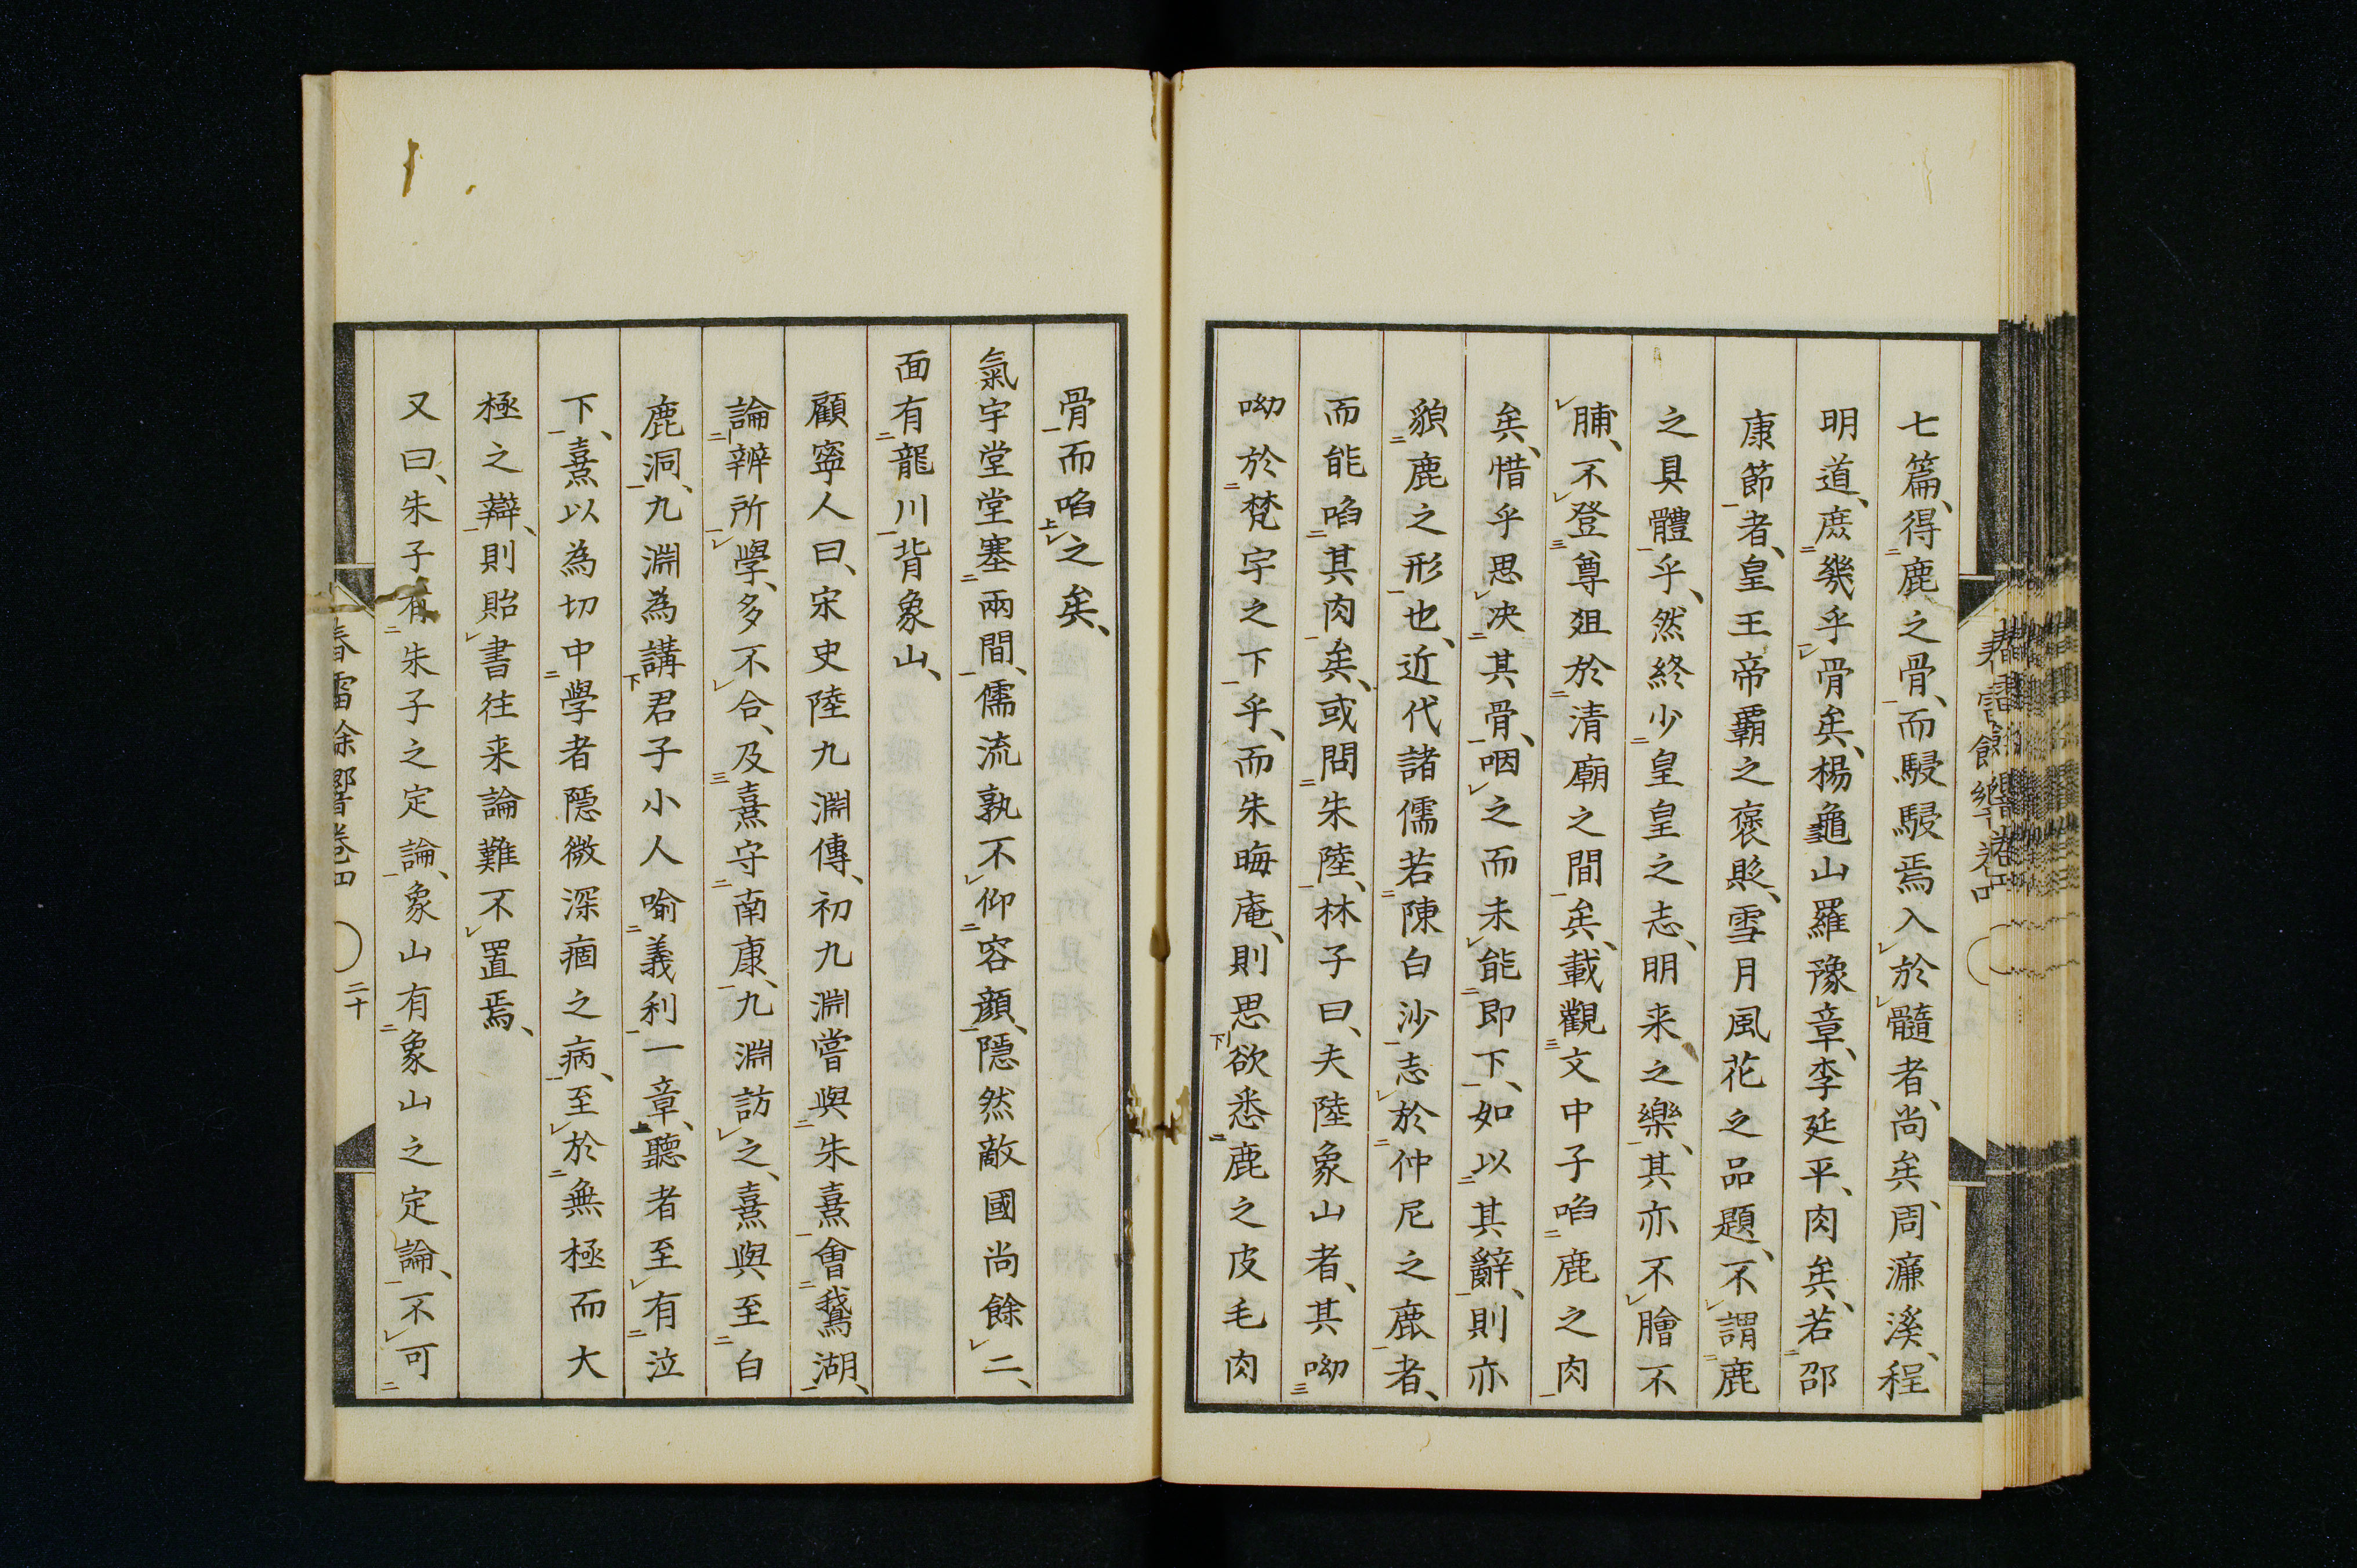 七篇、得鹿之骨、而駸駸焉入於髓者、尚矣、周濂溪、程
明道、庶幾乎骨矣、楊龜山羅豫章、李延平、肉矣、若邵
康節者、皇王帝霸之褒貶、雪月風花之品題、不謂鹿
之具體乎、然終少皇皇之志、明来之樂、其亦不膾不
脯、不登尊爼於清廟之間矣、載觀文中子啗鹿之肉
矣、惜乎思决其骨、咽之而未能即下、如以其辭、則亦
貌鹿之形也、近代諸儒若陳白沙志於仲尼之鹿者、
而能啗其肉矣、或問朱陸、林子曰、夫陸象山者、其呦
呦於梵宇之下乎、而朱晦庵、則思欲悉鹿之皮毛肉
骨而啗之矣、
氣宇堂堂塞兩間、儒流孰不仰容顔、隱然敵國尚餘二、
面有龍川背象山、
顧寧人曰、宋史陸九淵傳、初九淵嘗與朱熹會鵞湖、
論辨所學、多不合、及熹守南康、九淵訪之、熹與至白
鹿洞、九淵為講君子小人喻義利一章、聽者至有泣
下、熹以為切中學者隱微深痼之病、至於無極而大
極之辯、則貽書往来論難不置焉、
又曰、朱子有朱子之定論、象山有象山之定論、不可
春雷餘響卷四 二十